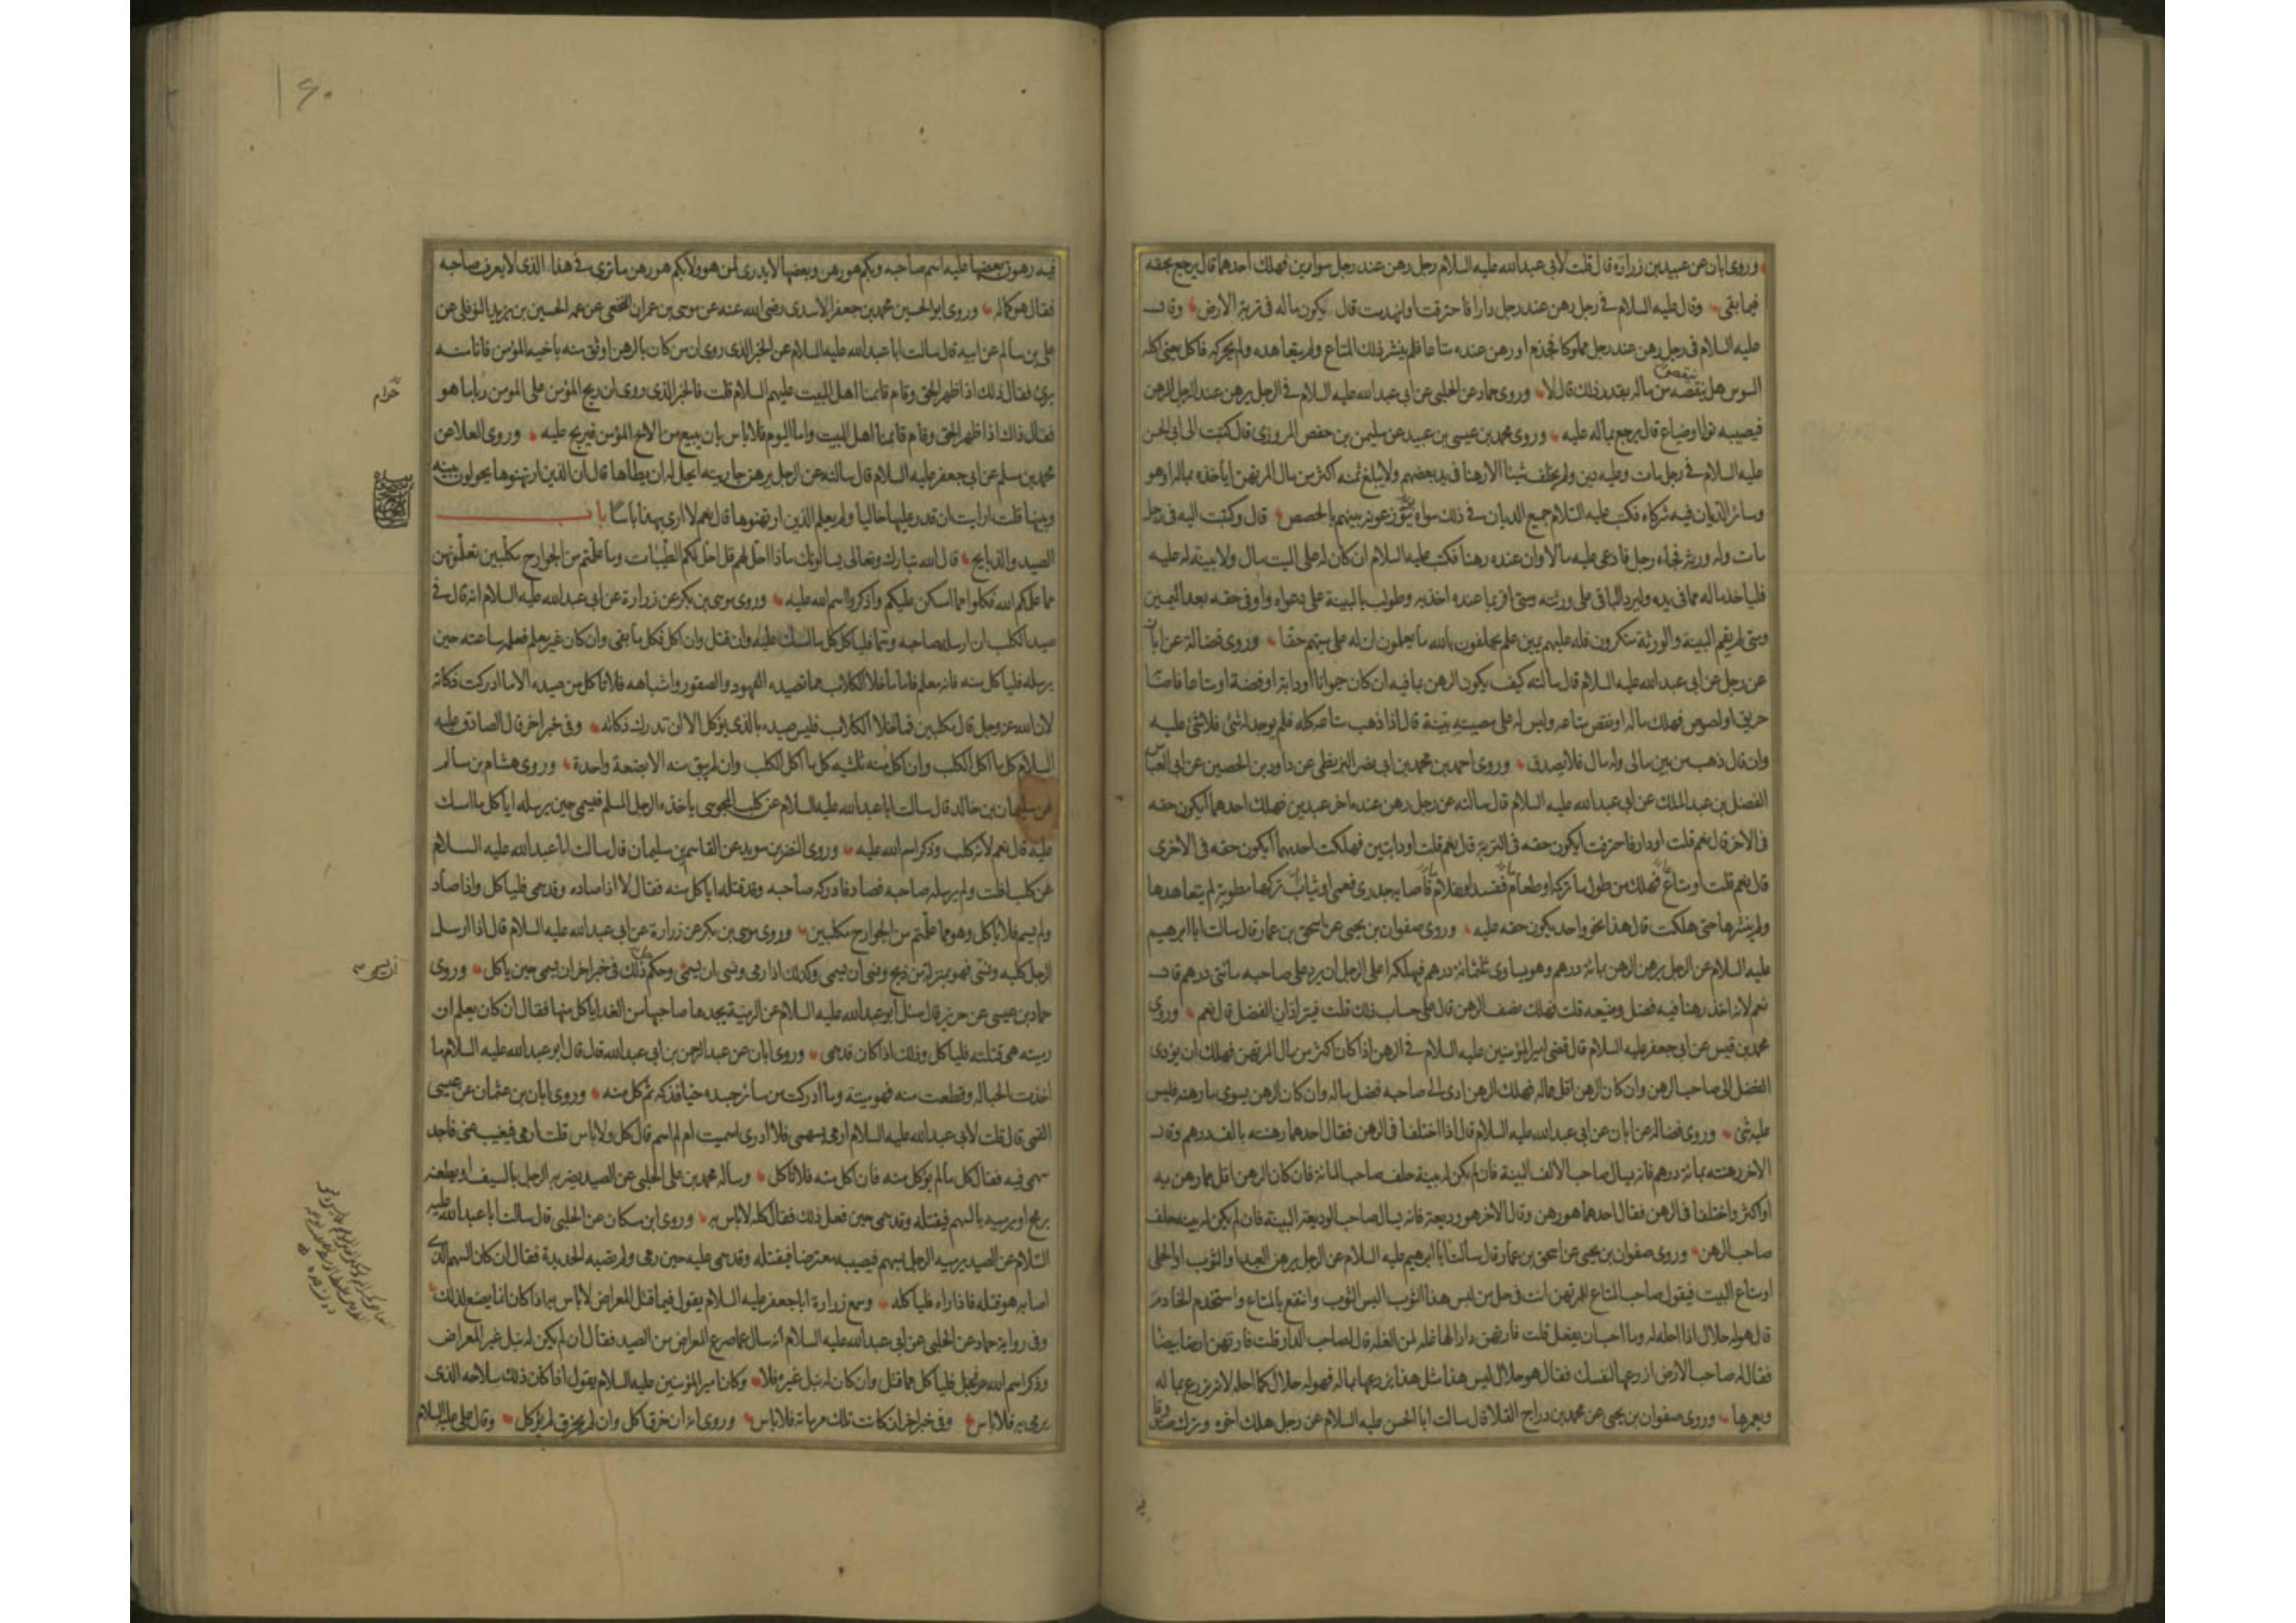 وروى ابان عن عبيد بن زرارة قال قلت لابى عبدالله عليه السلام رجل رهن عند رجل سوارين فهلك احدهما قال يرجع بحقه
فيما بقى وقال عليه السلام فى رجل رهن عند رجل دارا فاحترقت او انهدمت قال يكون ماله فى تربة الارض وقال
عليه السلام فى رجل رهن عند رجل مملوكا فجذم او رهن عنده متاعا فلم ينشر ذلك المتاع ولم يتعاهده ولم يحركه فاكل يعنى اكله
السوس هل ينقصه من ماله بقدر ذلك قال لا وروى حماد عن الحلبى عن ابى عبدالله عليه السلام فى الرجل يرهن عند الرجل الرهن
فيصيبه توا او ضياع قال يرجع بماله عليه وروى محمد بن عيسى بن عبيد عن سليمن بن حفص المروزى قال كتبت الى ابى الحسن
عليه السلام فى رجل مات وعليه دين ولم يخلف شيئا الا رهنا فى يد بعضهم ولا يبلغ ثمنه اكثر من مال المرتهن اياخذه بماله او هو
وسائر الديان فيه شركاء فكتب عليه السلام جميع الديان فى ذلك سواء يتوزعونه بينهم بالحصص قال وكتبت اليه فى رجل
مات وله ورثة فجاء رجل فادعى عليه مالا وان عنده رهنا فكتب عليه السلام ان كان له على الميت مال ولا بينة له عليه
فلياخذ ماله مما فى يده وليرد الباقى على ورثته ومتى اقر بما عنده اخذ به وطولب بالبينة على دعواه واوفى حقه بعد اليمين
ومتى لم يقم البينة والورثة ينكرون فله عليهم يمين علم يحلفون بالله ما يعلمون ان له على ميتهم حقا وروى فضالة عن ابان
عن رجل عن ابى عبدالله عليه السلام قال سالته كيف يكون الرهن بما فيه ان كان حيوانا او دابة او فضة او متاعا فاصابه
حريق او لصوص فهلك ماله او نقص متاعه وليس له على مصيبته بينة قال اذا ذهب متاعه كله فلم يوجد له شئ فلا شئ عليه
وان قال ذهب من بين مالى وله مال فلا يصدق وروى احمد بن محمد بن ابى نصر البزنطى عن داود بن الحصين عن ابى العباس
الفضل بن عبد الملك عن ابى عبدالله عليه السلام قال سالته عن رجل رهن عند اخر عبدين فهلك احدهما ايكون حقه
فى الاخر قال نعم قلت او دار فاحترقت ايكون حقه فى التربة قال نعم قلت او دابتين فهلكت احديهما ايكون حقه فى الاخرى
قال نعم قلت او متاع فهلك من طول ما تركه او طعام ففسد او غلام فاصابه جدرى فعمى او ثياب تركها مطوية لم يتعاهدها
ولم ينشرها حتى هلكت قال هذا نحو واحد يكون حقه عليه وروى صفوان بن يحيى عن اسحق بن عمار قال سالت ابا ابرهيم
عليه السلام عن الرجل يرهن الرهن بمائة درهم وهو يساوى ثلثمائة درهم فيهلكه اعلى الرجل ان يرد على صاحبه مائتى درهم قال
نعم لانه اخذ رهنا فيه فضل وضيعه قلت فهلك نصف الرهن قال على حساب ذلك قلت فيترادان الفضل قال نعم وروى
محمد بن قيس عن ابى جعفر عليه السلام قال قضى امير المؤمنين عليه السلام فى الرهن اذا كان اكثر من مال المرتهن فهلك ان يؤدى
الفضل الى صاحب الرهن وان كان الرهن اقل من ماله فهلك الرهن ادى الى صاحبه فضل ماله وان كان الرهن يسوى ما رهنه فليس
عليه شئ وروى فضالة عن ابان عن ابى عبدالله عليه السلام قال اذا اختلفا فى الرهن فقال احدهما رهنته بالف درهم وقال
الاخر رهنته بمائة درهم فانه يسال صاحب الالف البينة فان لم يكن له بينة حلف صاحب المائة فان كان الرهن اقل مما رهن به
او اكثر واختلفا فى الرهن فقال احدهما هو رهن وقال الاخر هو وديعة فانه يسال صاحب الوديعة البينة فان لم يكن له بينة حلف
صاحب الرهن وروى صفوان بن يحيى عن اسحق بن عمار قال سالت ابا ابرهيم عليه السلام عن الرجل يرهن العبد او الثوب او الحلى
او متاع البيت فيقول صاحب المتاع للمرتهن انت فى حل من لبس هذا الثوب البس الثوب وانتفع بالمتاع واستخدم الخادم
قال هو له حلال اذا احله له وما احب ان يفعل قلت فارتهن دارا لها غلة لمن الغلة قال لصاحب الدار قلت فارتهن ارضا بيضا
فقال له صاحب الارض ازرعها لنفسك فقال هو حلال ليس هذا مثل هذا يزرعها بماله فهو له حلال كما احله لانه يزرع بماله
ويعمرها وروى صفوان بن يحيى عن محمد بن دراج القلا قال سالت ابا الحسن عليه السلام عن رجل هلك اخوه وترك صندوقا
فيه
١٦٠
فيه رهون بعضها عليه اسم صاحبه وبكم هو رهن وبعضها لا يدرى لمن هو ولا بكم هو رهن ما ترى فى هذا الذى لا يعرف صاحبه
فقال هو كماله وروى ابو الحسين محمد بن جعفر الاسدى رضى الله عنه عن موسى بن عمران النخعى عن عمه الحسين بن يزيد النوفلى عن
على بن سالم عن ابيه قال سالت ابا عبدالله عليه السلام عن الخبر الذى روى ان من كان بالرهن اوثق منه باخيه المؤمن فانا منه
برئ فقال ذلك اذا ظهر الحق وقام قائمنا اهل البيت عليهم السلام قلت فالخبر الذى روى ان ربح المؤمن على المؤمن ربا ما هو
حرام
فقال ذاك اذا ظهر الحق وقام قائمنا اهل البيت واما اليوم فلا باس بان يبيع من الاخ المؤمن فيربح عليه وروى العلا عن
محمد بن مسلم عن ابى جعفر عليه السلام قال سالته عن الرجل يرهن جاريته ايحل له ان يطاها قال ان الذين ارتهنوها يحولون بينه
وبينها قلت ارايت ان قدر عليها خاليا ولم يعلم الذين ارتهنوها قال نعم لا ارى بهذا باسا باب
الصيد والذبايح قال الله تبارك وتعالى يسالونك ماذا احل لهم قل احل لكم الطيبات وما علمتم من الجوارح مكلبين تعلمونهن
مما علمكم الله فكلوا مما امسكن عليكم واذكروا اسم الله عليه وروى موسى بن بكر عن زرارة عن ابى عبدالله عليه السلام انه قال فى
صيد الكلب ان ارسله صاحبه وسمى فلياكل كل ما امسك عليه وان قتل وان اكل فكل ما بقى وان كان غير معلم فعلمه ساعته حين
يرسله فلياكل منه فانه معلم فاما ما خلا الكلاب مما تصيده الفهود والصقور واشباهه فلا تاكل من صيده الا ما ادركت ذكاته
لان الله عز وجل قال مكلبين فما خلا الكلاب فليس صيده بالذى يؤكل الا ان تدرك ذكاته وفى خبر اخر قال الصادق عليه
السلام كل ما اكل الكلب وان اكل منه ثلثيه كل ما اكل الكلب وان لم يبق منه الا بضعة واحدة وروى هشام بن سالم
عن سليمان بن خالد قال سالت ابا عبدالله عليه السلام عن كلب المجوسى ياخذه الرجل المسلم فيسمى حين يرسله اياكل مما امسك
عليه قال نعم لانه كلب وذكر اسم الله عليه وروى النضر بن سويد عن القاسم بن سليمان قال سالت ابا عبدالله عليه السلام
عن كلب افلت ولم يرسله صاحبه فصاد فادركه صاحبه وقد قتله اياكل منه فقال لا اذا صاده وقد سمى فلياكل واذا صاد
ولم يسم فلا ياكل وهو مما علمتم من الجوارح مكلبين وروى موسى بن بكر عن زرارة عن ابى عبدالله عليه السلام قال اذا ارسل
الرجل كلبه ونسى فهو بمنزلة من ذبح ونسى ان يسمى وكذلك اذا رمى ونسى ان يسمى وحكم ذلك فى خبر اخر ان يسمى حين ياكل وروى
ان يسمى
حماد بن عيسى عن حريز قال سئل ابو عبدالله عليه السلام عن الرمية يجدها صاحبها من الغد اياكل منها فقال ان كان يعلم ان
رميته هى قتلته فلياكل وذلك اذا كان قد سمى وروى ابان عن عبد الرحمن بن ابى عبدالله قال قال ابو عبدالله عليه السلام ما
اخذت الحبالة وقطعت منه فهو ميتة وما ادركت من سائر جسده حيا فذكه ثم كل منه وروى ابان بن عثمان عن عيسى
القمى قال قلت لابى عبدالله عليه السلام ارمى بسهمى فلا ادرى اسميت ام لم اسم قال كل ولا باس قلت ارمى فيغيب عنى فاجد
سهمى فيه فقال كل ما لم يؤكل منه فان اكل منه فلا تاكل وساله محمد بن على الحلبى عن الصيد يضربه الرجل بالسيف او يطعنه
برمح او يرميه بالسهم فيقتله وقد سمى حين فعل ذلك فقال كله لا باس به وروى ابن مسكان عن الحلبى قال سالت ابا عبدالله عليه
السلام عن الصيد يرميه الرجل بسهم فيصيبه معترضا فيقتله وقد سمى عليه حين رمى ولم تصبه الحديدة فقال ان كان السهم الذى
اصابه هو قتله فاذا راه فلياكله وسمع زرارة ابا جعفر عليه السلام يقول فيما قتل المعراض لا باس به اذا كان انما يصنع لذلك
وفى رواية حماد عن الحلبى عن ابى عبدالله عليه السلام انه سال عما صرع المعراض من الصيد فقال ان لم يكن له نبل غير المعراض
وذكر اسم الله عز وجل فلياكل مما قتل وان كان له نبل غيره فلا وكان امير المؤمنين عليه السلام يقول اذا كان ذلك سلاحه الذى
يرمى به فلا باس وفى خبر اخر ان كانت تلك مرماته فلا باس وروى انه ان خرق اكل وان لم يخرق لم يؤكل وقال على عليه السلام